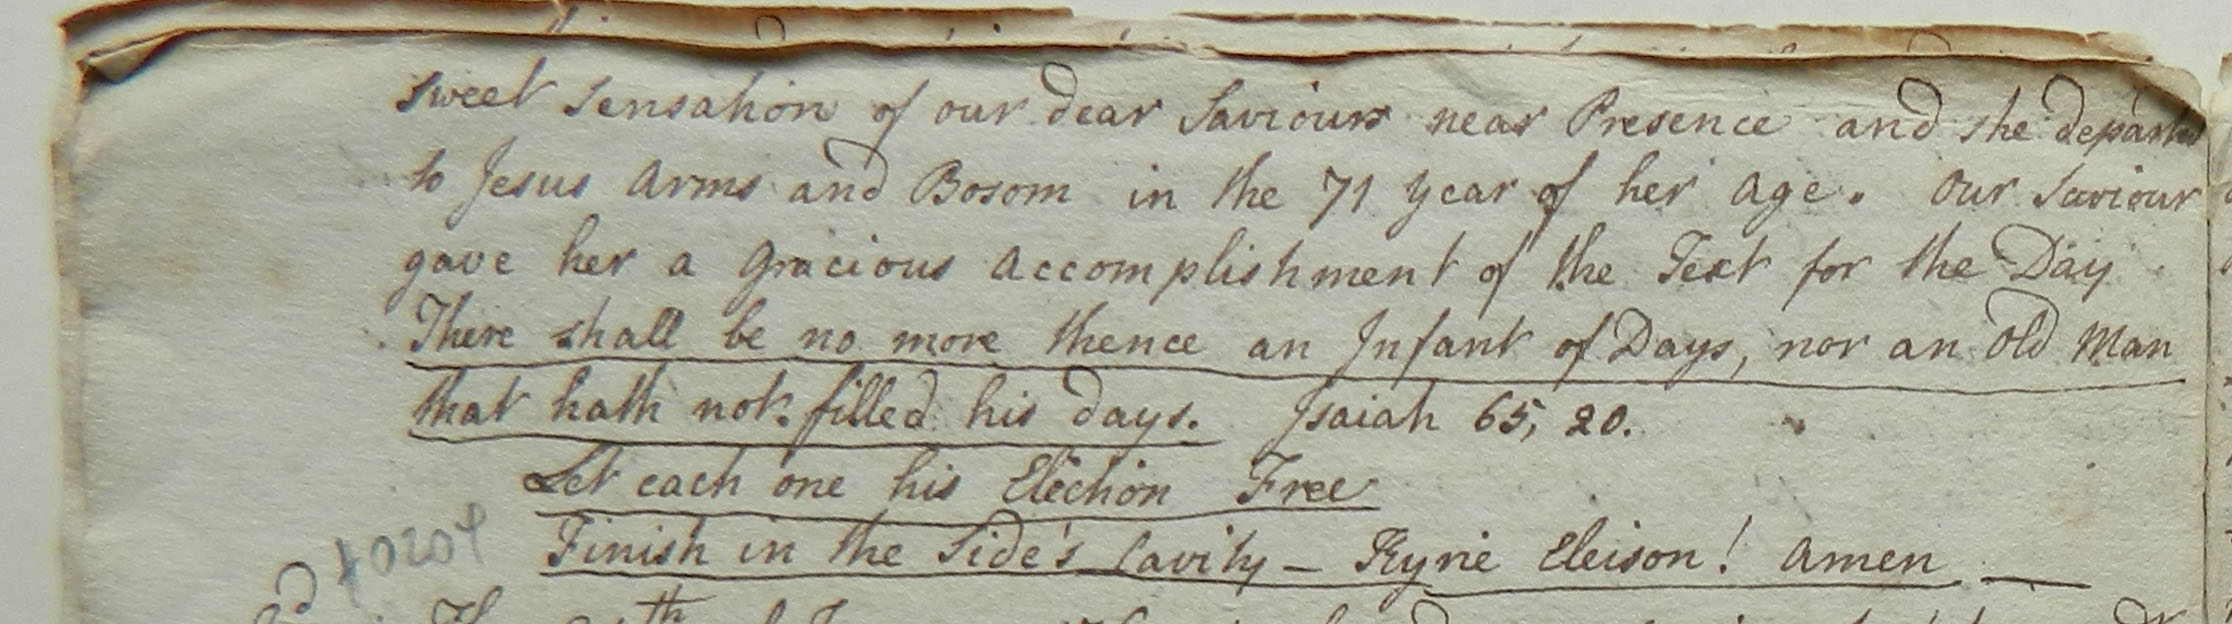 sweet sensation of our dear Saviours near Presence and she departed
to Jesus Arms and Bosom in the 71 year of her age. Our Saviour
gave her a Gracious Accomplishment of the Text for the Day
There shall be no more thence an Infant of Days, nor an Old Man
that hath not filled his days. Isaiah 65, 20.
Let each one his Election Free
Finish in the Side's Cavity – Kyrie Eleison! Amen —